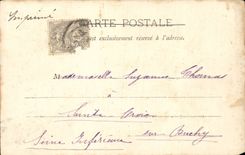 Imprimé
CARTE POSTALE
est exclusivement réservé à l'adresse.
Mademoiselle Suzanne Thomas
à
Sainte Croix
Seine Inférieure sur Buchy